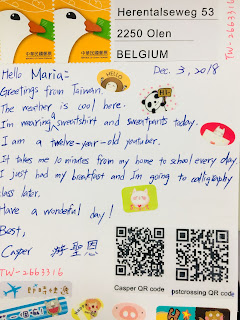 Herentalseweg 53
2250 Olen
BELGIUM
TW-2663316
中華民國郵票
中華民國郵票
Hello Maria:
Dec. 3, 2018
Greetings from Taiwan.
The weather is cool here.
I'm wearing a sweatshirt and sweatpants today.
I am a twelve-year-old youtuber.
It takes me 10 minutes from my home to school every day
I just had my breakfast and I'm going to calligraphy
class later.
Have a wonderful day!
Best,
Casper
聖恩
TW-2663316
Casper QR code
pstcrossing QR code